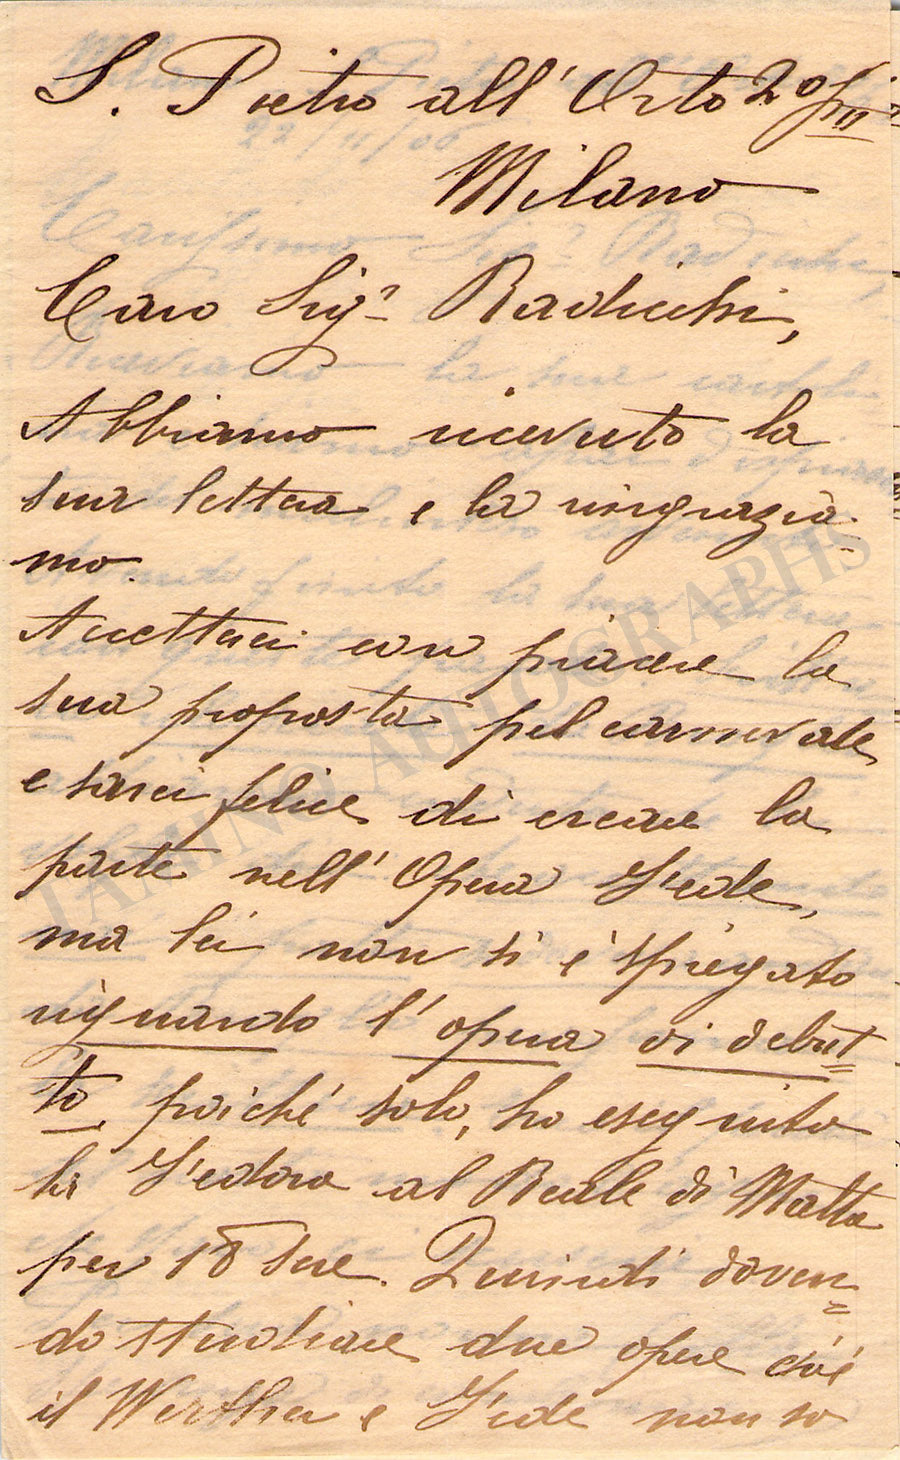 S. Pietro all' Orto 20 pº II
Milano
Caro Sigr. Radicchi,
Abbiamo ricevuto la
sua lettera e la ringrazia-
mo.
Accettarei con piacere la
sua proposta pel carnevale
e sarei felice di creare la
parte nell' Opera Fede,
ma lei non si è spiegato
riguardo l' opera di debut=
to, poiché solo, ho eseguito
la Fedora al Reale di Malta
per 18 sere. Quindi doven=
do studiare due opere cioè
il Werther e Fede non so
TAMINO AUTOGRAPHS
22/11/06
Carissimo Sigr. Radicchi,